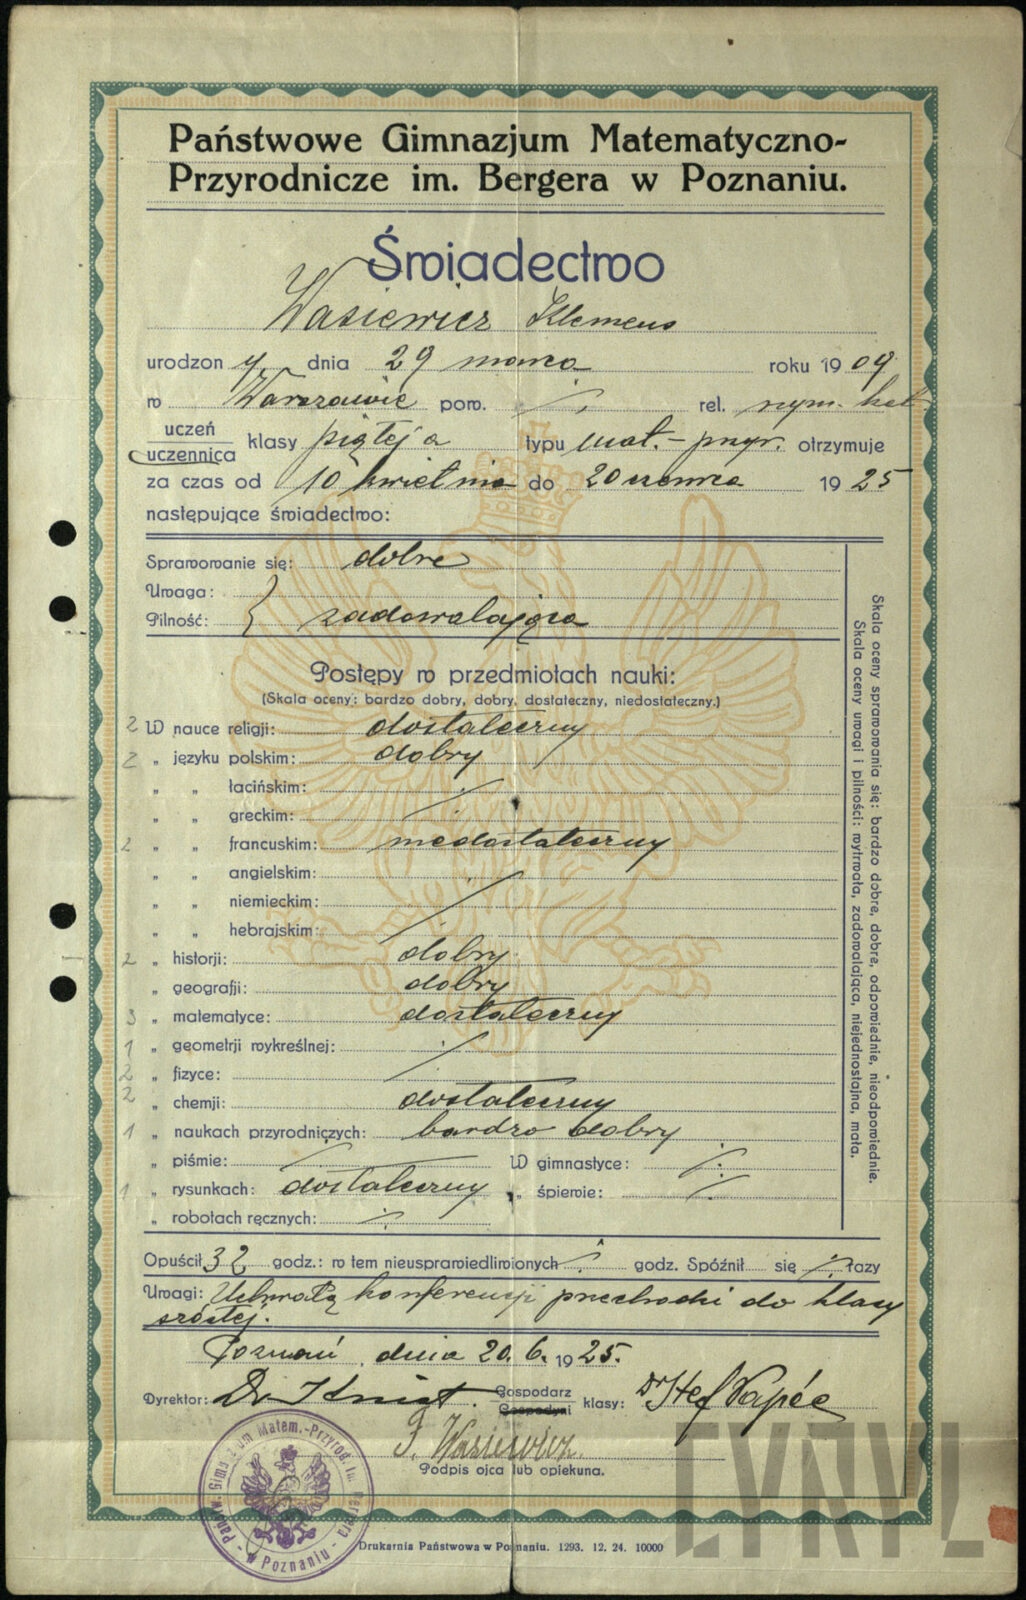 Państwowe Gimnazjum Matematyczno-
Przyrodnicze im. Bergera w Poznaniu.
Świadectwo
Wasiewicz Klemens
urodzony dnia 29 marca roku 1909
w Warszawie pow. ·/. rel. rzym. kat.
uczeń
uczennica klasy piątej a typu mat.-przyr. otrzymuje
za czas od 10 kwietnia do 20 czerwca 1925
następujące świadectwo:
Sprawowanie się: dobre
Uwaga:
Pilność: zadowalająca
Postępy w przedmiotach nauki:
(Skala oceny: bardzo dobry, dobry, dostateczny, niedostateczny.)
2 W nauce religji: dostateczny
2 „ języku polskim: dobry
„ „ łacińskim: ·/.
„ „ greckim:
2 „ „ francuskim: niedostateczny
„ „ angielskim:
„ „ niemieckim: ·/.
„ „ hebrajskim:
2 „ historji: dobry
„ geografji: dobry
3 „ matematyce: dostateczny
1 „ geometrji wykreślnej: ·/.
2 „ fizyce:
2 „ chemji: dostateczny
1 „ naukach przyrodniczych: bardzo dobry
„ piśmie: ·/. W gimnastyce: ·/.
1 „ rysunkach: dostateczny „ śpiewie: ·/.
„ robotach ręcznych: ·/.
Skala oceny sprawowania się: bardzo dobre, dobre, odpowiednie, nieodpowiednie.
Skala oceny uwagi i pilności: wytrwała, zadowalająca, niejednostajna, mała.
Opuścił 32 godz.: w tem nieusprawiedliwionych ·/. godz. Spóźnił się ·/. razy
Uwagi: Uchwałą konferencji przechodzi do klasy
szóstej.
Poznań, dnia 20. 6. 1925.
Dyrektor: Dr Gospodarz
Gospodyni klasy: Dr Stef Papée
Wasiewicz
Podpis ojca lub opiekuna.
Państw. Gimnazjum Matem.-Przyrod. im. Bergera
w Poznaniu
Drukarnia Państwowa w Poznaniu. 1293. 12. 24. 10000
CYRYL